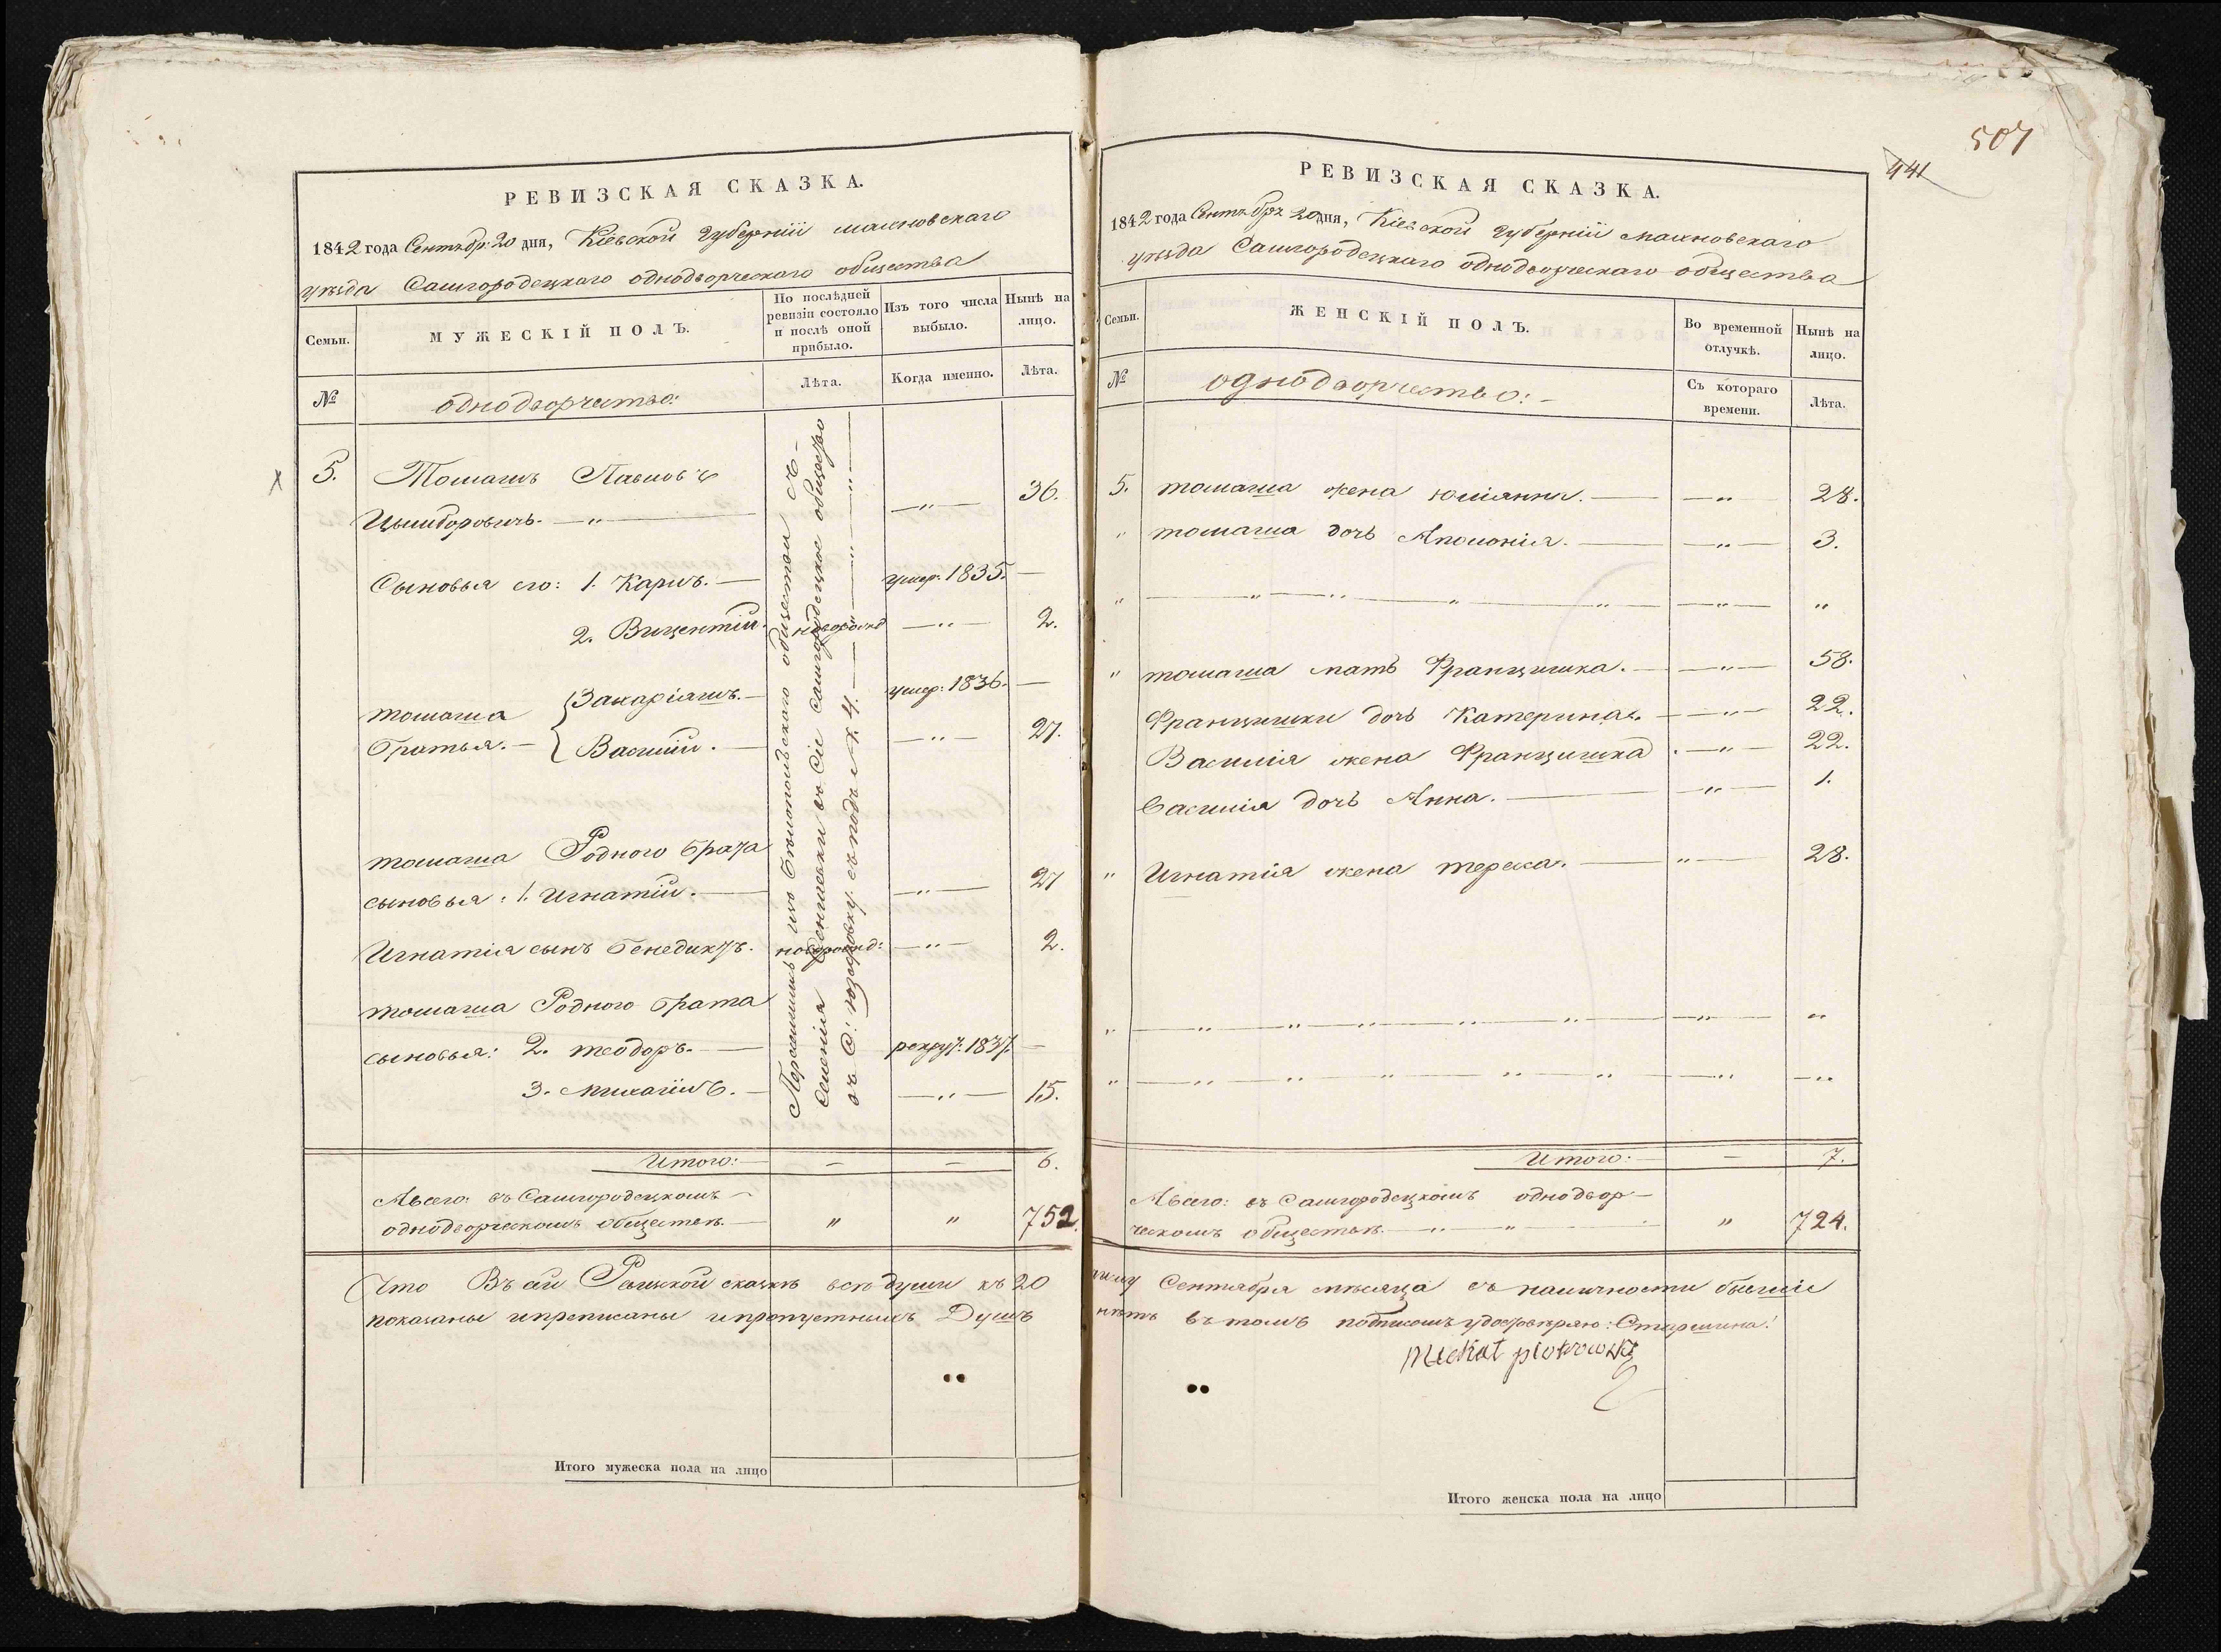 РЕВИЗСКАЯ СКАЗКА.
1842 года Сентябр: 20 дня, Кіевской губерніи махновскаго
уѣзда Самгородецкаго однодворческаго общества
Семьи.
МУЖЕСКІЙ ПОЛЪ.
По послѣдней ревизіи состояло и послѣ оной прибыло.
Изъ того числа выбыло.
Нынѣ на лицо.
№
однодворчество:
Лѣта.
Когда именно.
Лѣта.
5. Томашъ Павловъ
Цымборовичъ. —„— —„— 36.
Сыновья его: 1. Карлъ. — умер: 1835. —
2. Вицентій. новорожд —„— 2.
томаша братья. — { Захаріашъ. — умер: 1836. —
Василій. — —„— 27.
томаша Родного брата
сыновья: 1. Игнатій. — —„— 27
Игнатія сынъ Бенедиктъ. новорожд: —„— 2.
томаша Родного брата
сыновья: 2. теодоръ. — рекрут: 1837. —
3. михаилъ. — —„— 15.
общества
въ сіе Самгородецкое общество
подъ № 4.
Итого: — — — 6.
Авсего: въ Самгородецкомъ
однодворческомъ обществѣ. — „ „ 752.
Что Въ сей сказкѣ всѣ души къ 20
показаны ипреписаны ипропустныхъ Душъ
Итого мужеска пола на лицо
507
441
РЕВИЗСКАЯ СКАЗКА.
1842 года Сентябр 20 дня, Кіевской губерніи махновскаго
уѣзда Самгородецкаго однодворческаго общества
Семьи.
ЖЕНСКІЙ ПОЛЪ.
Во временной отлучкѣ.
Нынѣ на лицо.
№
однодворчество: —
Съ котораго времени.
Лѣта.
5. томаша жена юліанна. — —„— 28.
„ томаша дочь Аполонія. — —„— 3.
„ —„—„—„—„— —„— „
„ томаша мать Францишка. — —„— 58.
Францишки дочь Катерина. — —„— 22.
Василія жена Францишка. —„— 22.
Василія дочь Анна. — —„— 1.
„ Игнатія жена тереса. — „— 28.
„ —„—„—„—„—„— —„— „
„ —„—„—„—„—„— —„— —„
Итого: — — 7.
Авсего: въ Самгородецкомъ однодвор-
ческомъ обществѣ. —„—„— „ 724.
Сентября мѣсяца въ наличности бывшіе
нѣтъ въ томъ подписомъ удостовѣряю: Старшина:
Michał piotrowski
Итого женска пола на лицо